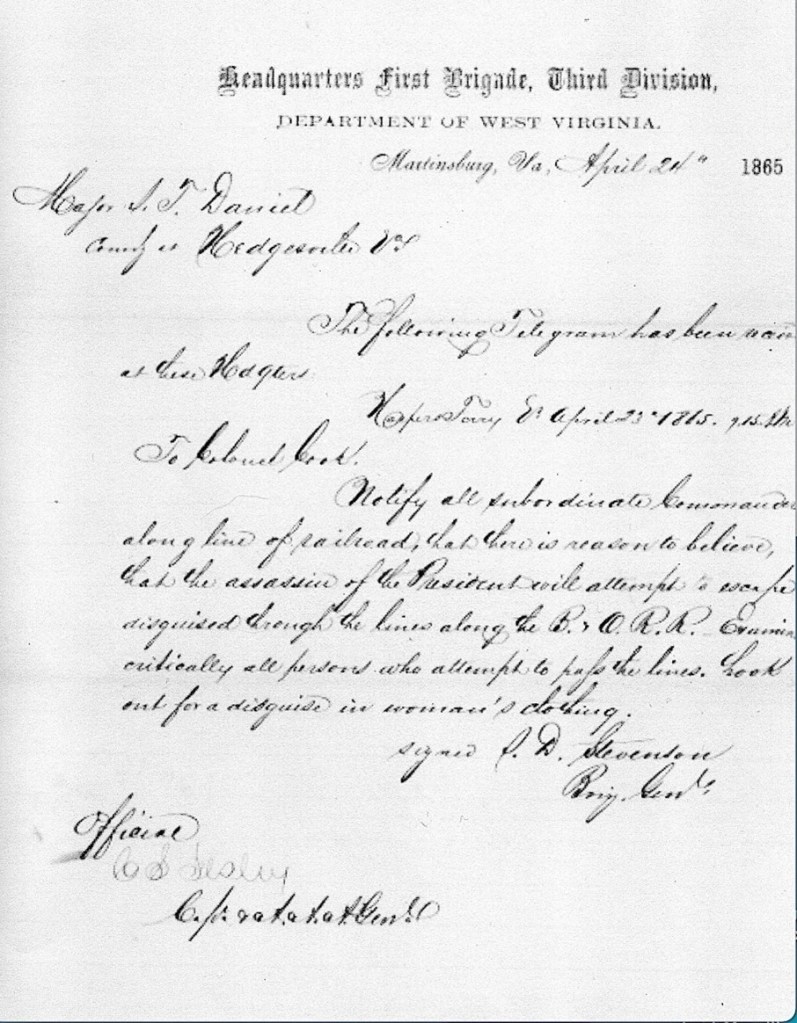 Headquarters First Brigade, Third Division,
DEPARTMENT OF WEST VIRGINIA.
Martinsburg, Va, April 24th 1865
Major S. T. Daniel
Comdg at Hedgesville Va
The following Telegram has been
at these Hdqters
Harpers Ferry Va April 23rd 1865.
To Colonel Cook.
Notify all subordinate Commander
along line of railroad, that there is reason to believe,
that the assassin of the President will attempt to escape
disguised through the lines along the B. & O. R. R. Examin
critically all persons who attempt to pass the lines. Look
out for a disguise in woman's clothing.
signed J. D. Stevenson
Brig. Genl.
Official